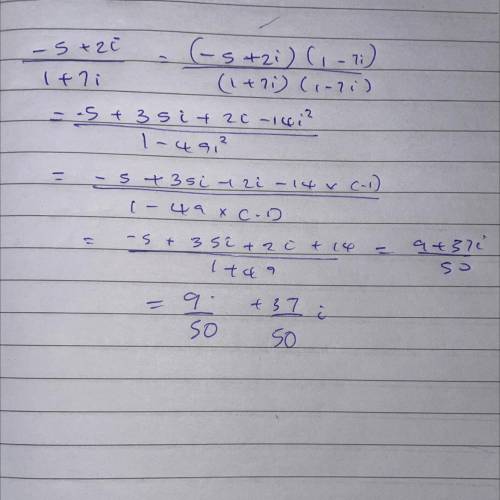 (-5+2i)/(1+7i) = (-5+2i)(1-7i)/(1+7i)(1-7i)
= -5+35i+2i-14i²/1-49i²
= -5+35i+2i-14×(-1)/1-49×(-1)
= -5+35i+2i+14/1+49 = 9+37i/50
= 9/50 +37/50 i